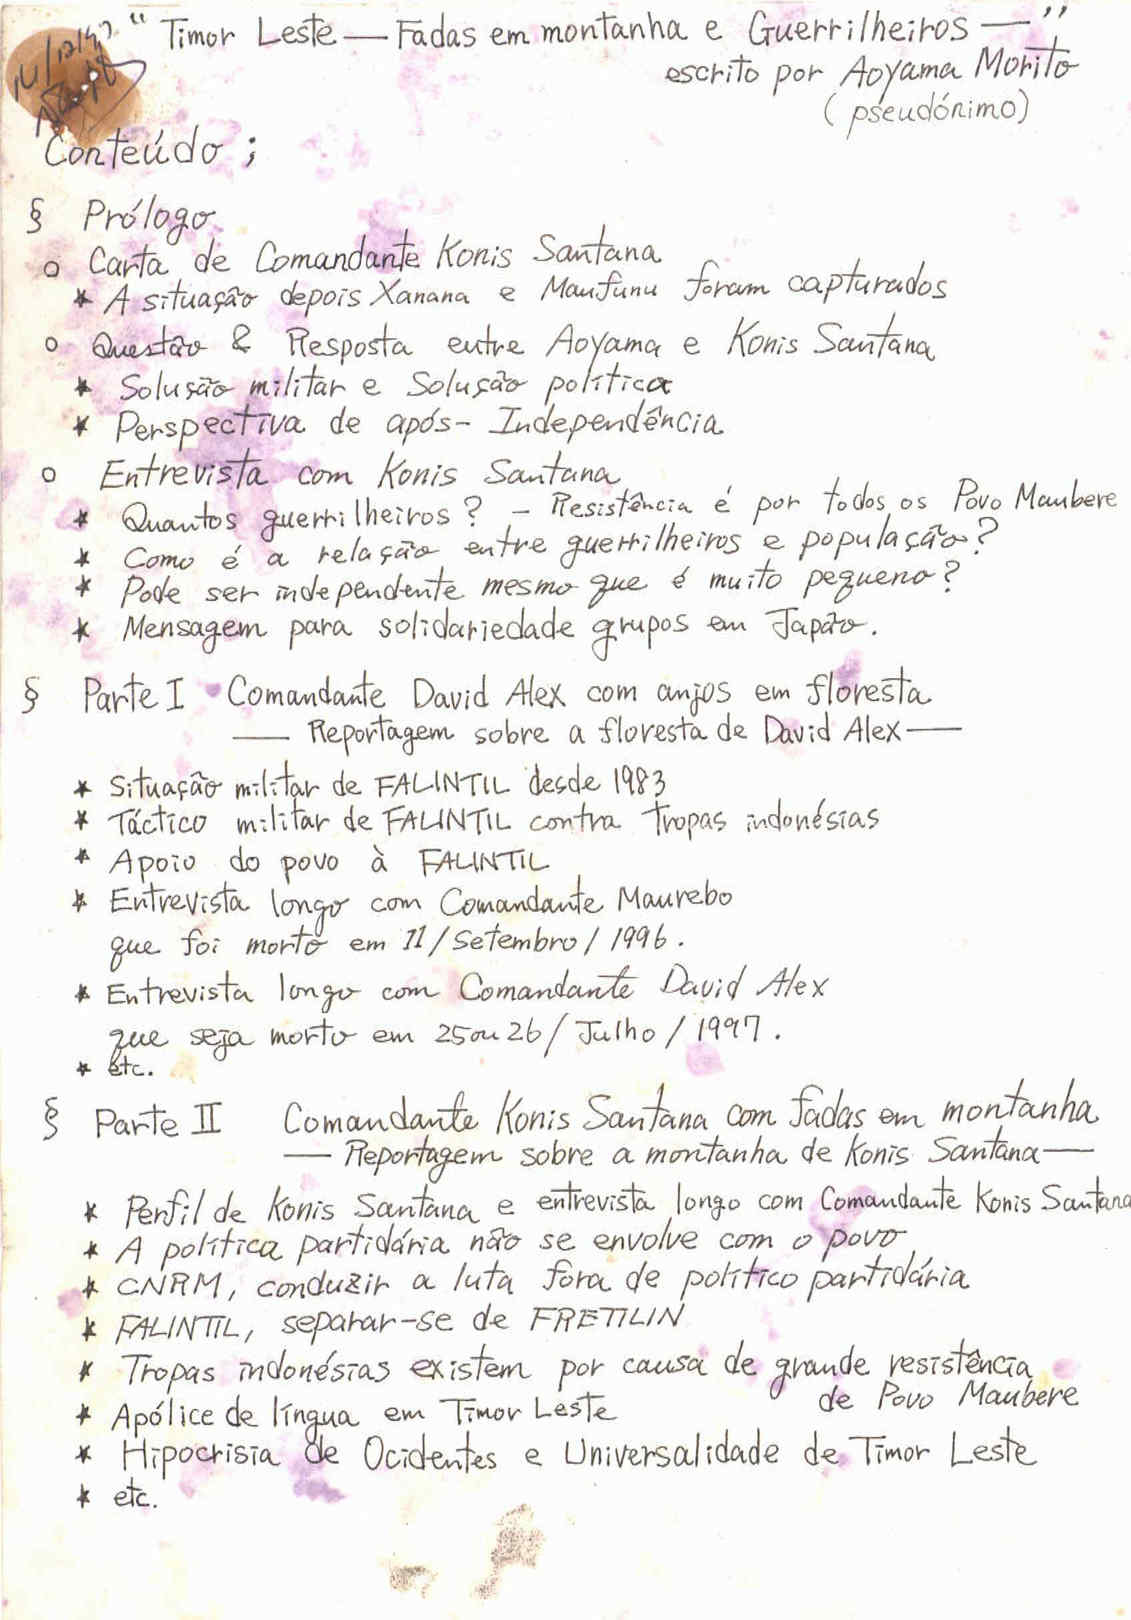 14/12/97
" Timor Leste — Fadas em montanha e Guerrilheiros — "
escrito por Aoyama Morito
(pséudónimo)
Conteúdo ;
§ Prólogo
o Carta de Comandante Konis Santana
* A situação depois Xanana e Maufunu foram capturados
o Questão & Resposta entre Aoyama e Konis Santana
* Solução militar e Solução política
* Perspectiva de após- Independência
o Entrevista com Konis Santana
* Quantos guerrilheiros? - Resistência é por todos os Povo Maubere
* Como é a relação entre guerrilheiros e população?
* Pode ser independente mesmo que é muito pequeno?
* Mensagem para solidariedade grupos em Japão.
§ Parte I Comandante David Alex com anjos em floresta
— Reportagem sobre a floresta de David Alex —
* Situação militar de FALINTIL desde 1983
* Táctico militar de FALINTIL contra tropas indonésias
* Apoio do povo à FALINTIL
* Entrevista longo com Comandante Maurebo
que foi morto em 11/Setembro/1996.
* Entrevista longo com Comandante David Alex
que seja morto em 25ou26/Julho/1997.
* etc.
§ Parte II Comandante Konis Santana com fadas em montanha
— Reportagem sobre a montanha de Konis Santana —
* Perfil de Konis Santana e entrevista longo com Comandante Konis Santana
* A política partidária não se envolve com o povo
* CNRM, conduzir a luta fora de político partidária
* FALINTIL, separar-se de FRETILIN
* Tropas indonésias existem por causa de grande resistência
de Povo Maubere
* Apólice de língua em Timor Leste
* Hipocrisia de Ocidentes e Universalidade de Timor Leste
* etc.